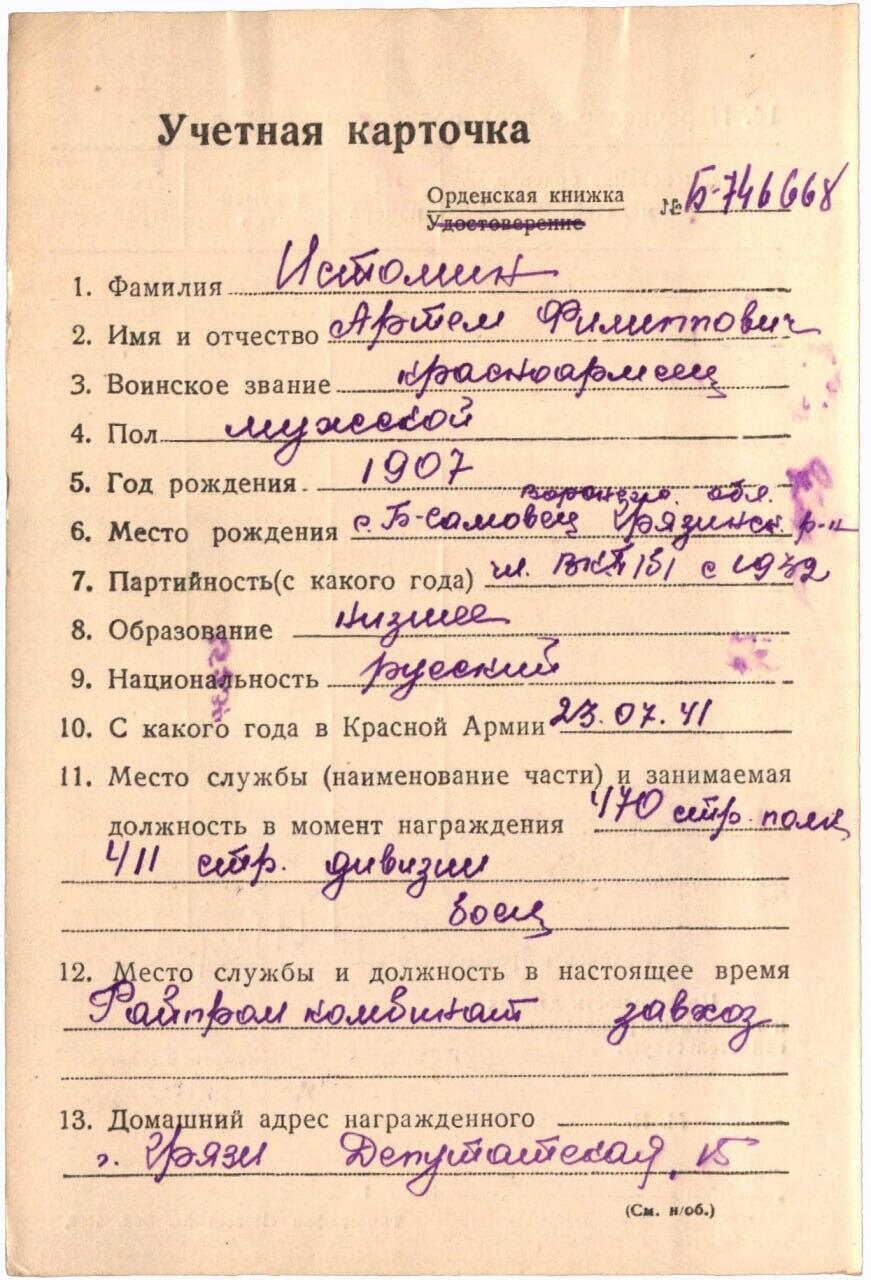 Учетная карточка
Орденская книжка № Б-746668
Удостоверение
1. Фамилия Истомин
2. Имя и отчество Артем Филиппович
3. Воинское звание красноармеец
4. Пол мужской
5. Год рождения 1907
Воронежс. обл.
6. Место рождения с. Б-Самовец Грязинск. р-н
7. Партийность(с какого года) чл. ВКП/б/ с 1932
8. Образование низшее
9. Национальность русский
10. С какого года в Красной Армии 23.07.41
11. Место службы (наименование части) и занимаемая
должность в момент награждения 470 стр. полк
411 стр. дивизии
боец
12. Место службы и должность в настоящее время
Райпромкомбинат завхоз
13. Домашний адрес награжденного
г. Грязи Депутатская,
(См. н/об.)